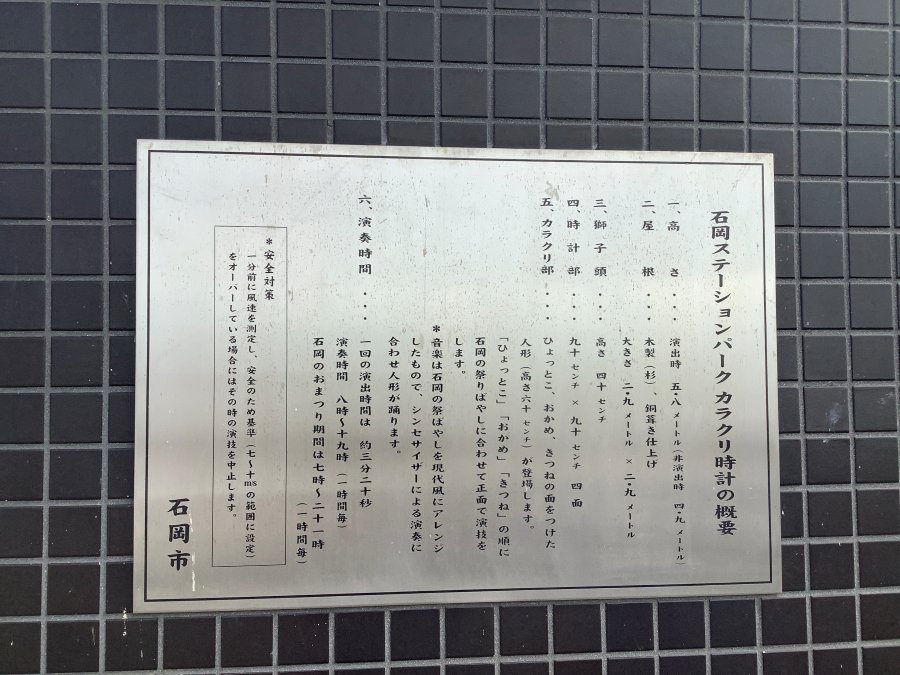 石岡ステーションパークカラクリ時計の概要
一、高さ・・・演出時 五・八メートル(非演出時 四・九メートル)
二、屋根・・・木製(杉)、銅葺き仕上げ
大きさ 二・九メートル × 二・九メートル
三、獅子頭・・・高さ 四十センチ
四、時計部・・・九十センチ × 九十センチ 四面
五、カラクリ部・・・ひょっとこ、おかめ、きつねの面をつけた
人形(高さ六十センチ)が登場します。
「ひょっとこ」「おかめ」「きつね」の順に
石岡の祭りばやしに合わせて正面で演技を
します。
*音楽は石岡の祭ばやしを現代風にアレンジ
したもので、シンセサイザーによる演奏に
合わせ人形が踊ります。
六、演奏時間・・・一回の演出時間は 約三分二十秒
演奏時間 八時~十九時(一時間毎)
石岡のおまつり期間は七時~二十一時
(一時間毎)
*安全対策
一分前に風速を測定し、安全のため基準(七~十msの範囲に設定)
をオーバーしている場合にはその時の演技を中止します。
石岡市